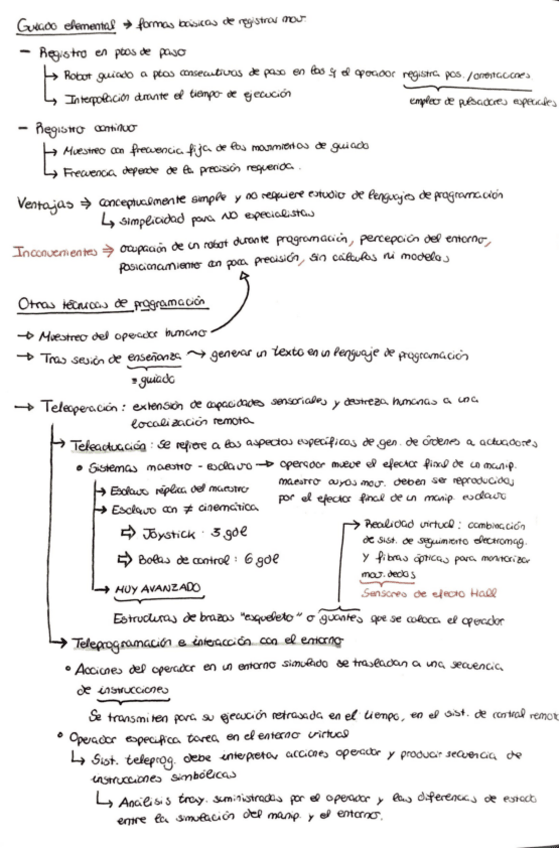 Guiado elemental → formas básicas de registrar mov.
- Registro en ptos de paso
↳ Robot guiado a ptos consecutivos de paso en los q el operador registra pos./orientaciones
empleo de pulsadores especiales
↳ Interpolación durante el tiempo de ejecución
- Registro continuo
↳ Muestreo con frecuencia fija de los movimientos de guiado
↳ Frecuencia depende de la precisión requerida.
Ventajas ⇒ conceptualmente simple y no requiere estudio de lenguajes de programación
↳ simplicidad para NO especialistas
Inconvenientes ⇒ ocupación de un robot durante programación, percepción del entorno,
posicionamiento con poca precisión, sin cálculos ni modelos
Otras técnicas de programación
→ Muestreo del operador humano
→ Tras sesión de enseñanza → generar un texto en un lenguaje de programación
= guiado
→ Teleoperación: extensión de capacidades sensoriales y destreza humanas a una
localización remota
↳ Teleactuación: se refiere a los aspectos específicos de gen. de órdenes a actuadores
• Sistemas maestro - esclavo → operador mueve el efector final de un manip.
maestro cuyos mov. deben ser reproducidos
por el efector final de un manip. esclavo
↳ Esclavo réplica del maestro
↳ Esclavo con ≠ cinemática
⇒ Joystick · 3 gdl
⇒ Bolas de control: 6 gdl
↳ MUY AVANZADO
Estructuras de brazos "esqueleto" o guantes que se coloca el operador
→ Realidad virtual: combinación
de sist. de seguimiento electromag.
y fibras ópticas para monitorizar
mov. dedos
Sensores de efecto Hall
↳ Teleprogramación e interacción con el entorno
• Acciones del operador en un entorno simulado se trasladan a una secuencia
de instrucciones
Se transmiten para su ejecución retrasada en el tiempo, en el sist. de control remot
• Operador especifica tarea en el entorno virtual
↳ Sist. teleprog. debe interpretar acciones operador y producir secuencia de
instrucciones simbólicas
↳ Análisis tray. suministradas por el operador y las diferencias de estado
entre la simulación del manip. y el entorno.